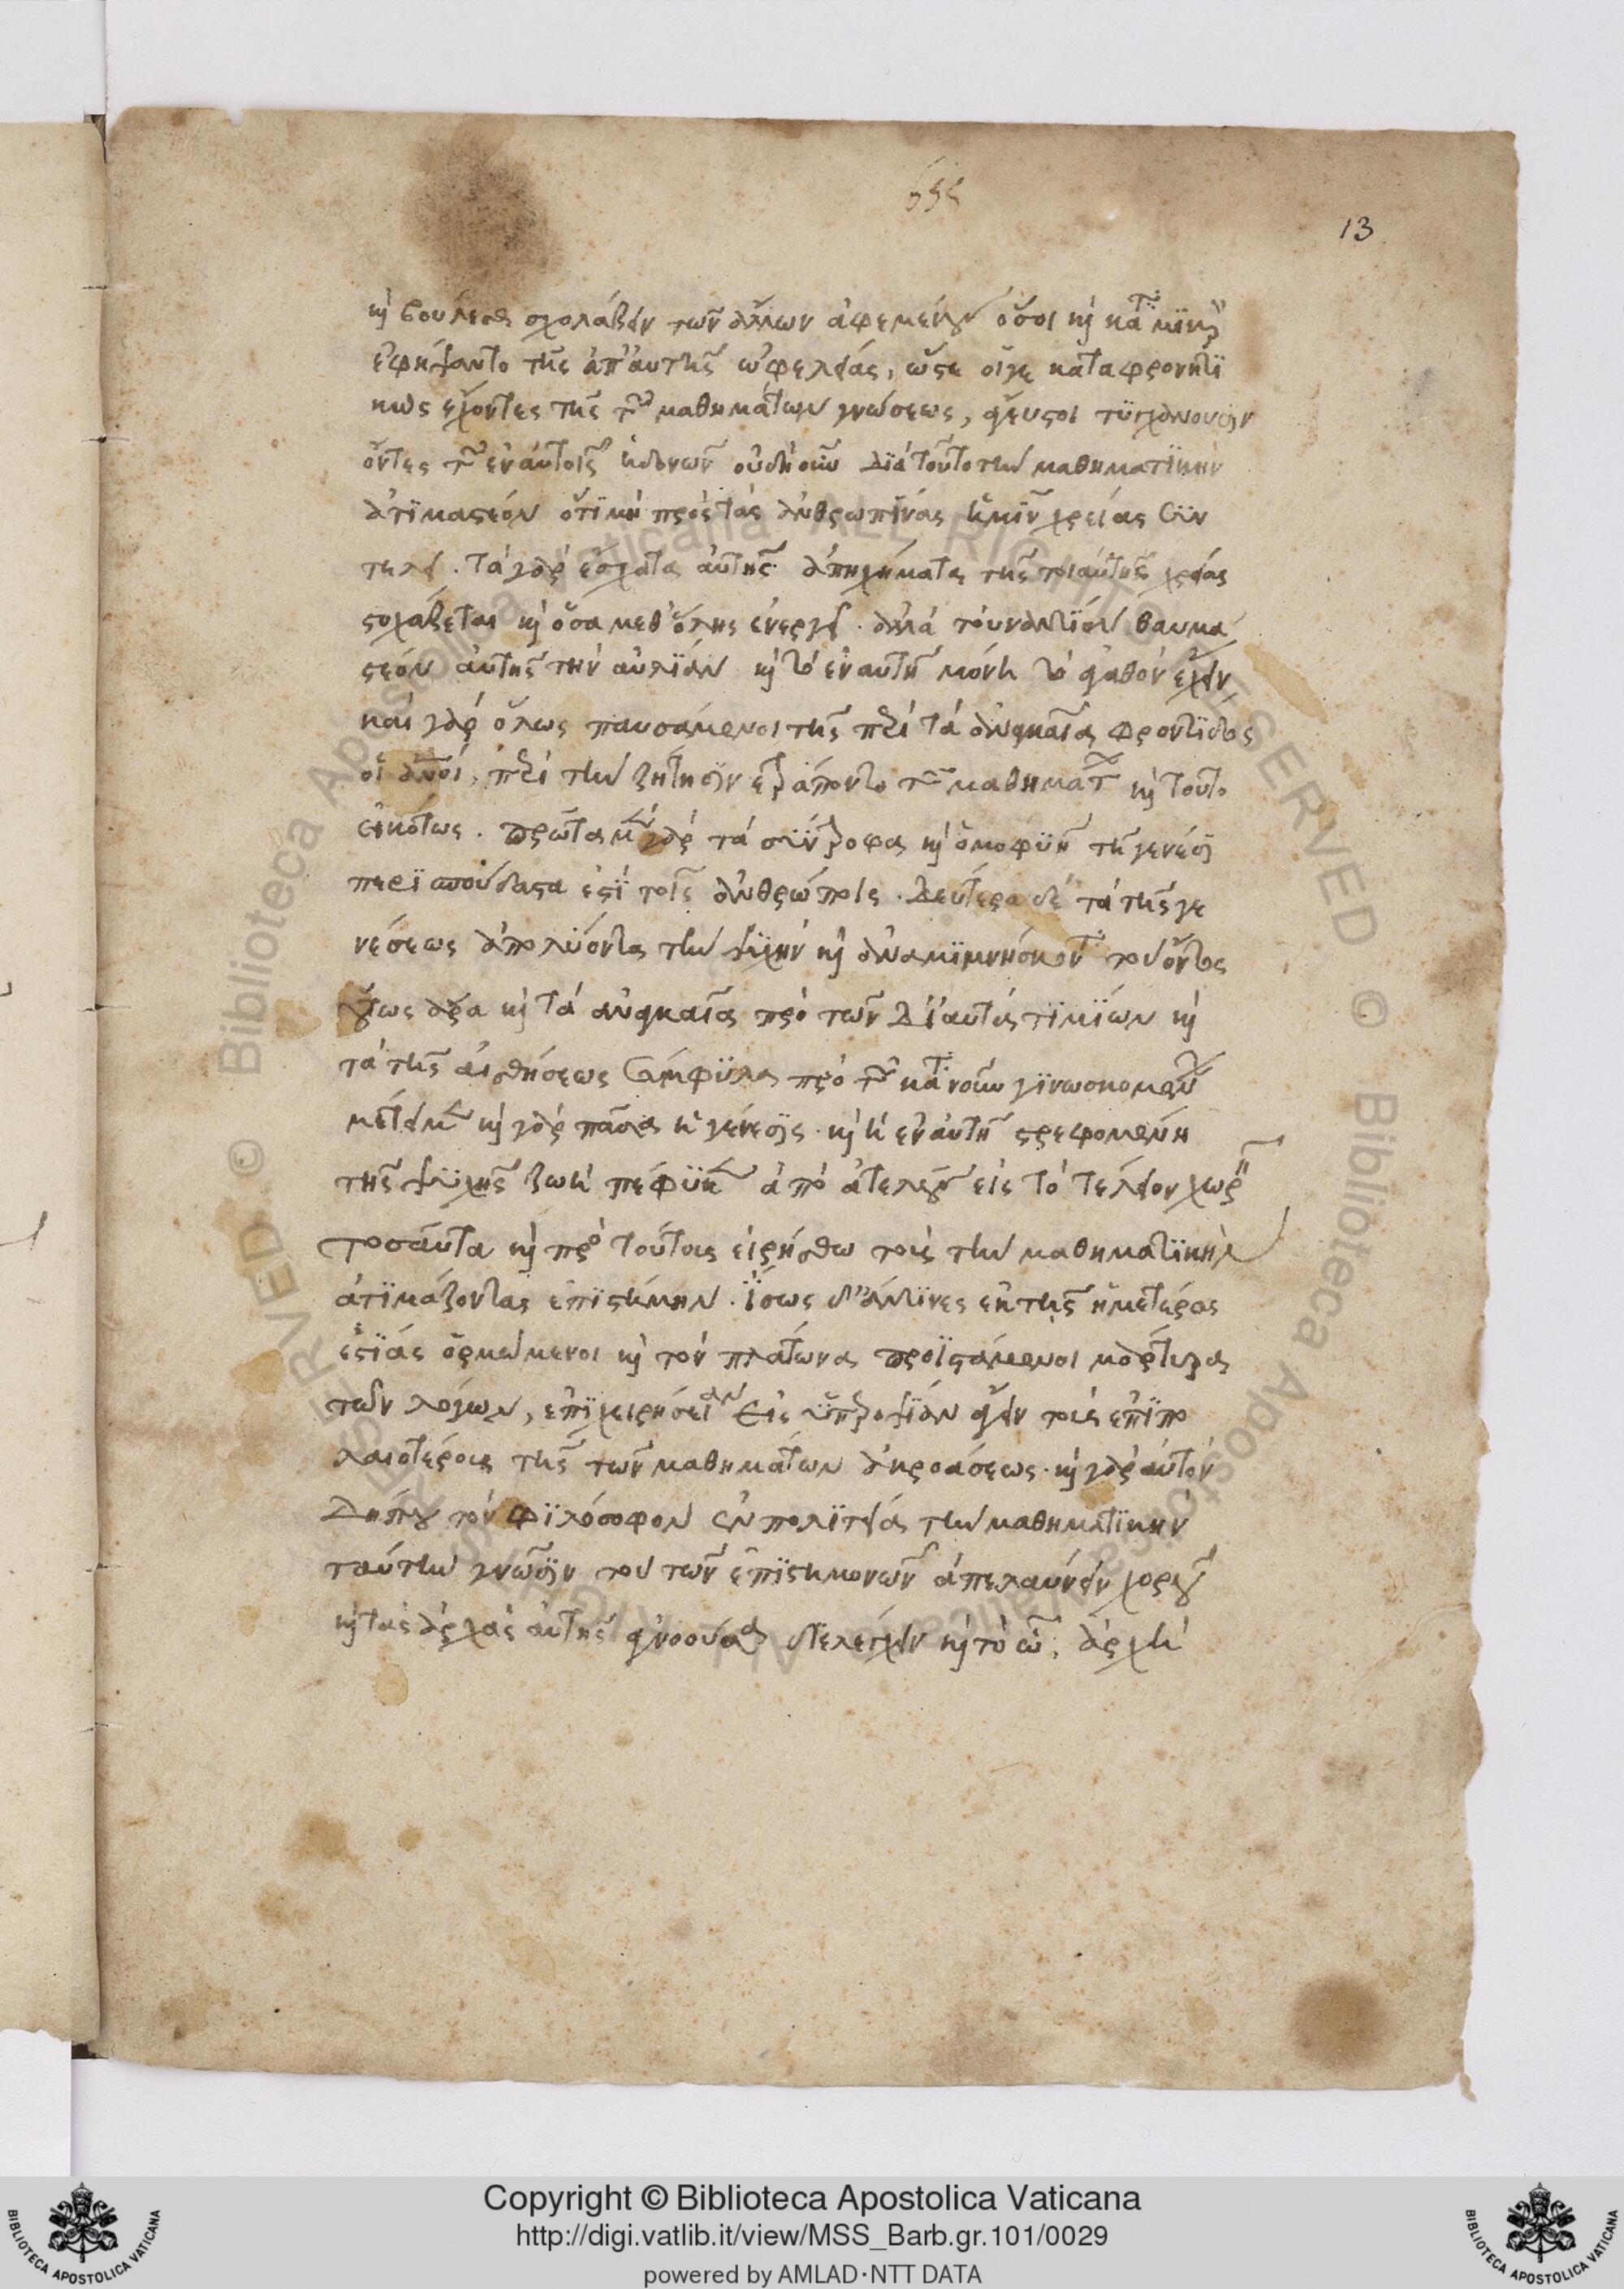 ϛϛϛ
13
κ(αὶ) βούλεσθαι σχολάζειν τῶν ἄλλων ἀφεμένους ὅσοι κ(αὶ) κατὰ μικρὸν
ἐφήψαντο τῆς ἀπ' αὐτῆς ὠφελείας, ὥστε οἵγε καταφρονητι
κῶς ἔχοντες τῆς τῶν μαθημάτων γνώσεως, ἄγευστοι τυγχάνουσιν
ὄντες τῶν ἐν αὐτοῖς ἡδονῶν οὐδὴ οὖν διὰ τοῦτο τὴν μαθηματικὴν
ἀτιμαστέον ὅτι μὴ πρὸς τὰς ἀνθρωπίνας ἡμῖν χρείας συν
τελεῖ. τὰ γὰρ ἔσχατα αὐτῆς ἀπηχήματα τῆς τοιαύτης χρείας
στοχάζεται κ(αὶ) ὅσα μεθ' ὕλης ἐνεργεῖ. ἀλλὰ τοὐναντίον θαυμα
στέον αὐτῆς τὴν ἀυλίαν κ(αὶ) τὸ ἐν αὐτῇ μόνῃ τὸ ἀγαθὸν ἔχειν
καὶ γὰρ ὅλως παυσάμενοι τῆς περὶ τὰ ἀναγκαῖα φροντίδος
οἱ ἄνθρωποι, περὶ τὴν ζήτησιν ἐτράποντο τῶν μαθημάτων κ(αὶ) τοῦτο
εἰκότως. πρῶτα μὲν γὰρ τὰ σύντροφα κ(αὶ) ὁμοφυῆ τῇ γενέσει
περισπούδαστα ἐστὶ τοῖς ἀνθρώποις. δεύτερα δὲ τὰ τῆς γε
νέσεως ἀπολύοντα τὴν ψυχὴν κ(αὶ) ἀναμιμνήσκοντα τοῦ ὄντος
οὕτως ἄρα κ(αὶ) τὰ ἀναγκαῖα πρὸ τῶν δι' αὐτὰ τιμίων κ(αὶ)
τὰ τῆς αἰσθήσεως σύμφυλα πρὸ τῶν κατὰ νοῦν γινωσκομένων
μέτειμεν κ(αὶ) γὰρ πᾶσα ἡ γένεσις. κ(αὶ) ἡ ἐν αὐτῇ στρεφομένη
τῆς ψυχῆς ζωὴ πέφυκεν ἀπὸ ἀτελοῦς εἰς τὸ τέλειον χωρεῖν
τοσαῦτα κ(αὶ) πρὸς τούτοις εἰρήσθω τοῖς τὴν μαθηματικὴν
ἀτιμάζοντας ἐπιστήμην. ἴσως δ' ἄν τινες ἐκ τῆς ἡμετέρας
ἑστίας ὁρμώμενοι κ(αὶ) τὸν πλάτωνα προϊστάμενοι μάρτυρα
τῶν λόγων, ἐπιχειρήσειαν εἰς ὑπεροψίαν ἄγειν τοὺς ἐπιπο
λαιοτέρους τῆς τῶν μαθημάτων ἀκροάσεως. κ(αὶ) γὰρ αὐτὸν
δήπου τὸν φιλόσοφον ἐν πολιτείᾳ τὴν μαθηματικὴν
ταύτην γνῶσιν τοῦ τῶν ἐπιστημονῶν ἀπελαύνειν χοροῦ
κ(αὶ) τὰς ἀρχὰς αὐτῆς ἀγνοοῦσαν διελέγχειν κ(αὶ) τὸ ὧ. ἀρχὴ
Copyright © Biblioteca Apostolica Vaticana
http://digi.vatlib.it/view/MSS_Barb.gr.101/0029
powered by AMLAD·NTT DATA